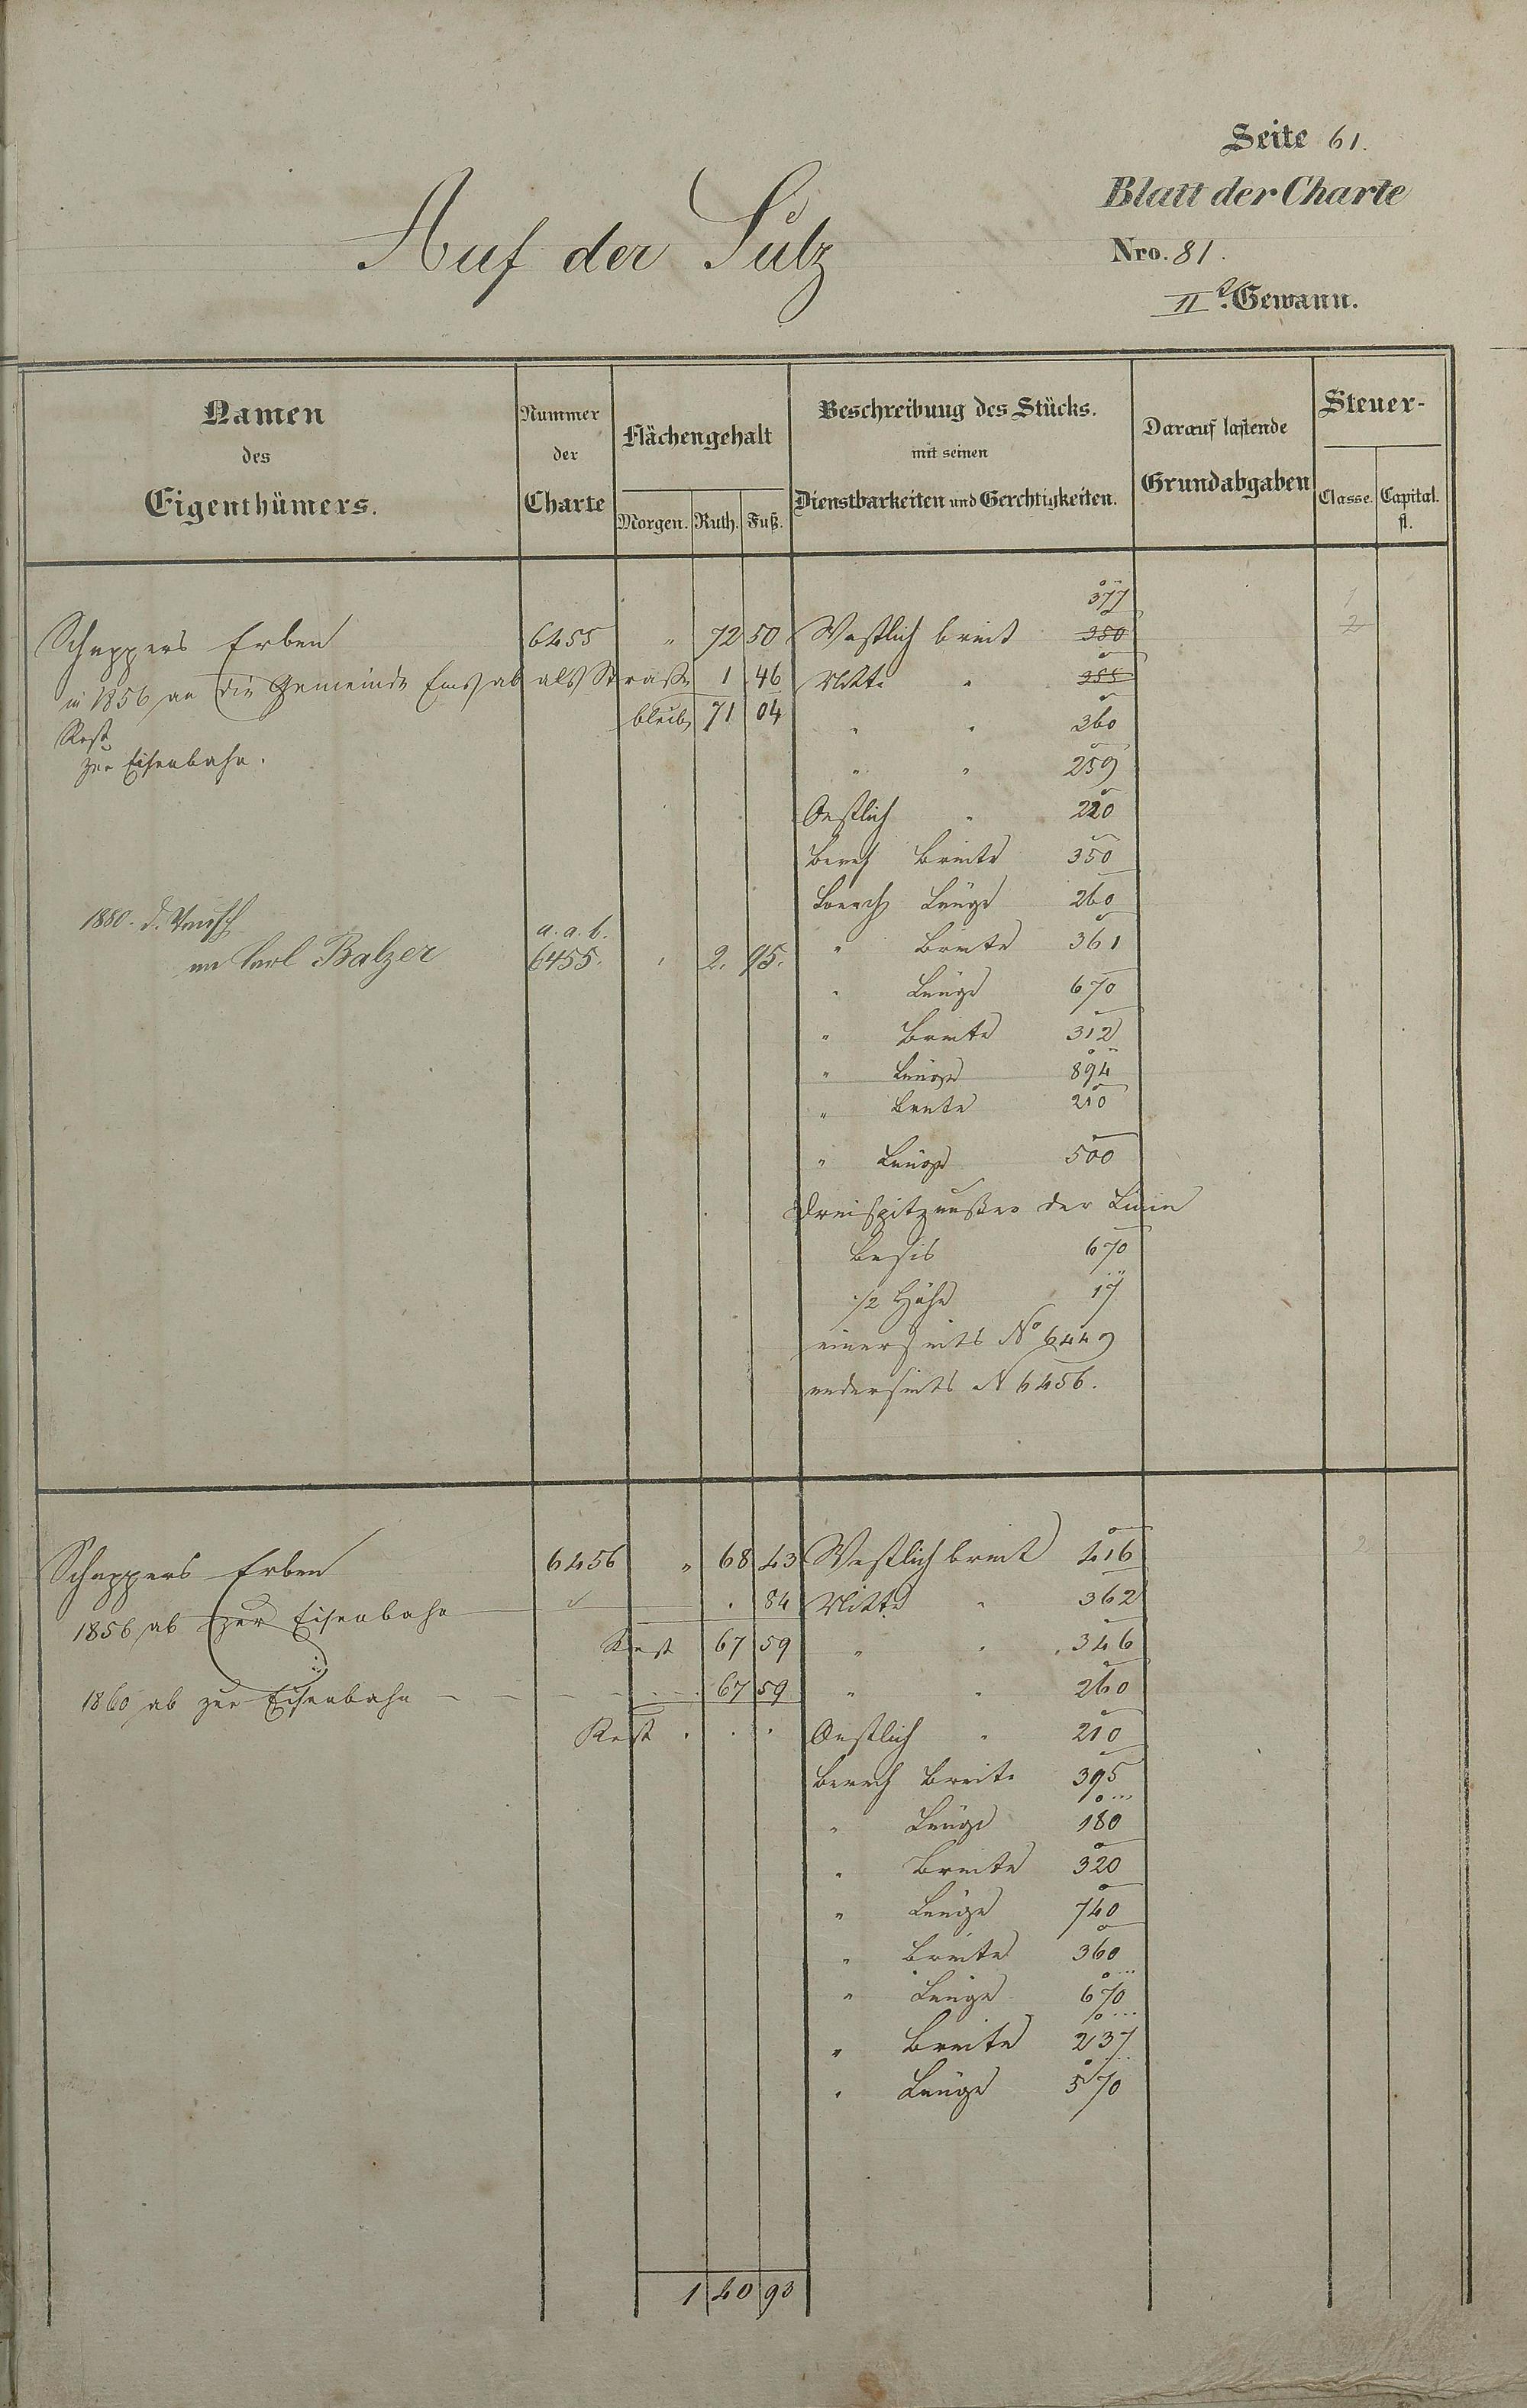 Seite 61.
Blatt der Charte
Auf der Sulz
Nro. 81.
II.te Gewann.
Namen des Eigenthümers.
Nummer der Charte
Flächengehalt
Morgen. Ruth. Fuß.
Beschreibung des Stücks.
mit seinen
Dienstbarkeiten und Gerchtigkeiten.
Darauf lastende
Grundabgaben
Steuer-
Classe. Capital.
fl.
377 1
Schappers Erben 6455 " 72 50 Westlich breit 350 2
in 1856 an die Gemeinde Ems ab als Straße 1 46 Mitte " 355
bleibt 71 04 " " 360
Rest
zur Eisenbahn. " " 259
Oestlich " 220
berech Breite 350
berech Länge 260
1880. d.
an Carl Balzer a. a. b. 6455. " 2. 95. " Breite 361
" Länge 670
" Breite 312
" Länge 894
" Breite 210
" Länge 500
Dreispitz außer der Linie
Basis 670
1/2 Höhe 17
einerseits No 6449
anderseits N 6456.
Schappers Erben 6456 " 68 43 Westlich breit 416 2
1856 ab zur Eisenbahn " . 84 Mitte " 362
Rest 67 59 " " 346
1860 ab zur Eisenbahn - - - 67 59 " " 260
Rest . . . Oestlich " 210
berech Breite 395
" Länge 180
" Breite 320
" Länge 740
" Breite 360
" Länge 670
" Breite 237
" Länge 570
1 40 93